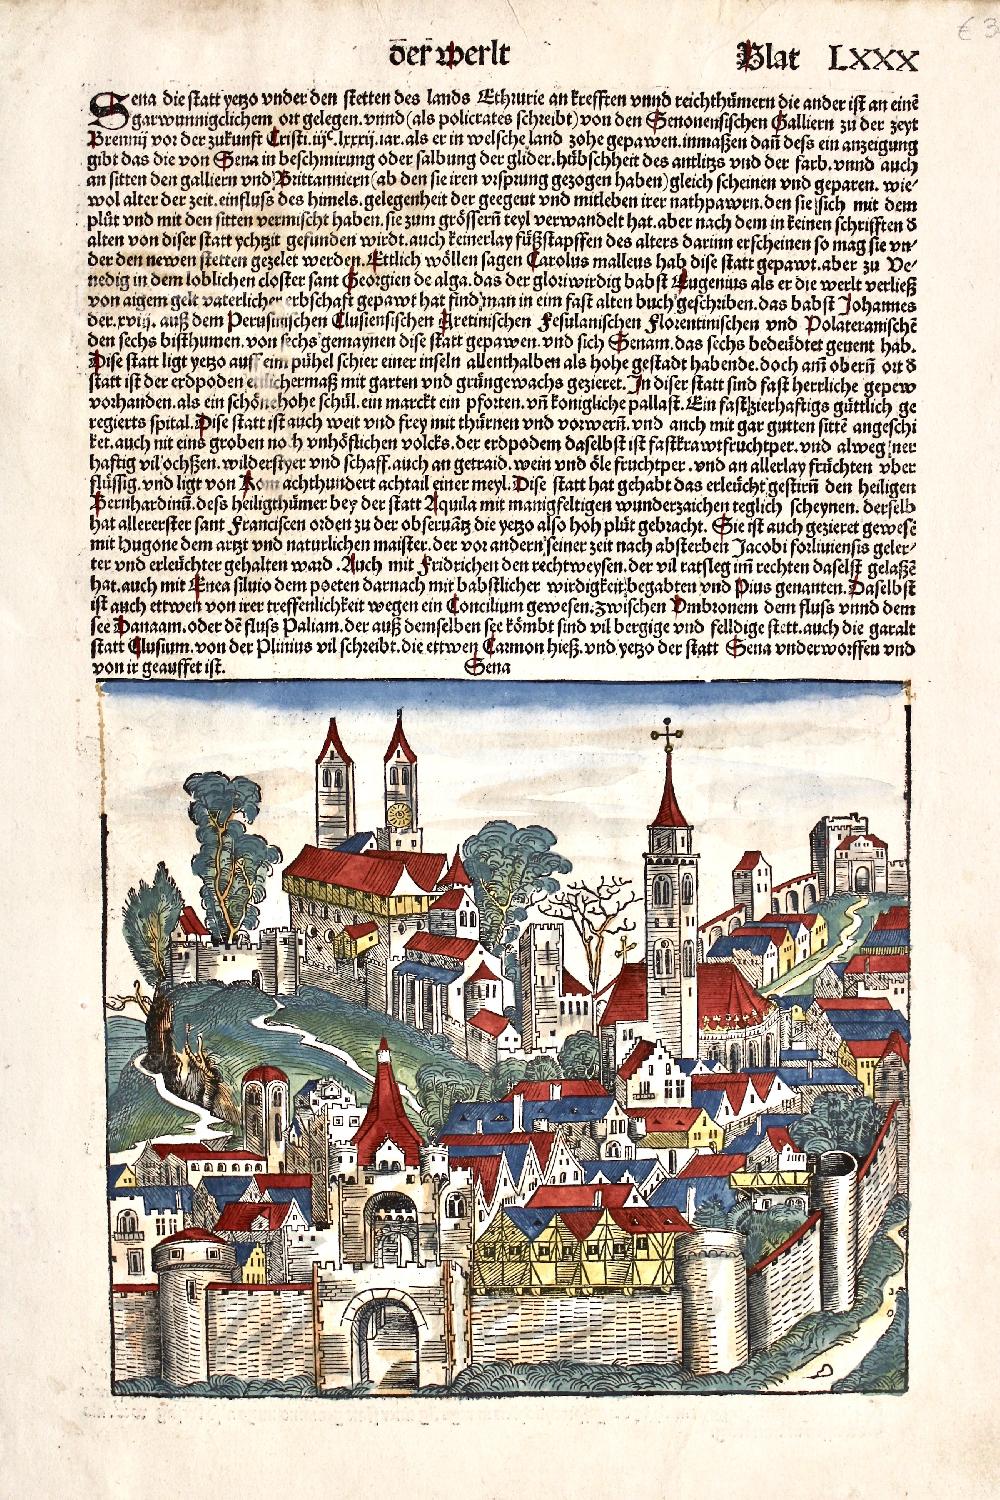 der werlt
Blat LXXX
€ 3
Sena die statt yetzo vnder den stetten des lands Ethrurie an krefften vnnd reichthümern die ander ist an einē
gar wunnigclichem ort gelegen. vnnd (als policrates schreibt) von den Senonensischen Galliern zu der zeyt
Brennij vor der zukunft Cristi. iijᶜ. lxxxij. iar. als er in welsche land zohe gepawen. inmaßen dañ dess ein anzeigung
gibt das die von Sena in beschmirung oder salbung der glider. hübschheit des antlitzs vnd der farb. vnnd auch
an sitten den galliern vnd Brittanniern (ab den sie iren vrsprung gezogen haben) gleich scheinen vnd geparen. wie-
wol alter der zeit. einfluss des himels. gelegenheit der gegent vnd mitleben irer nathpawrn. den sie sich mit dem
plüt vnd mit den sitten vermischt haben. sie zum grössern̄ teyl verwandelt hat. aber nach dem in keinen schrifften d
alten von diser statt ychtzit gefunden wirdt. auch keinerlay füßstapffen des alters darinn erscheinen so mag sie vn-
der den newen stetten gezelet werden. Ettlich wöllen sagen Carolus malleus hab dise statt gepawt. aber zu Ve-
nedig in dem loblichen closter sant Georgien de alga. das der gloriwirdig babst Eugenius als er die werlt verließ
von aigem gelt vaterlicher erbschaft gepawt hat find man in eim fast alten buch geschriben. das babst Johannes
der. xviij. auß dem Perusinischen Clusiensischen Aretinischen Fesulanischen Florentinischen vnd Volateranischē
den sechs bisthumen. von sechs gemaynen dise statt gepawen. vnd sich Senam. das sechs bedeüdtet genent hab.
Dise statt ligt yetzo auff eim pühel schier einer inseln allenthalben als hohe gestadt habende. doch am̄ obern̄ ort d
statt ist der erdpoden ettlichermaß mit garten vnd grüngewachs gezieret. In diser statt sind fast herrliche gepew
vorhanden. als ein schöne hohe schül. ein marckt ein pforten. vn̄ konigliche pallast. Ein fast zierhaftigs güttlich ge
regierts spital. Dise statt ist auch weit vnd frey mit thürnen vnd vorwern̄. vnd auch mit gar gutten sittē angeschi
ket. auch nit eins groben noch vnhöflichen volcks. der erdpodem daselbst ist fast krawtfruchtper. vnd alweg ner
haftig vil ochßen. wilderstyer vnd schaff. auch an getraid. wein vnd öle fruchtper. vnd an allerlay früchten vber
flüssig. vnd ligt von Rom achthundert achtail einer meyl. Dise statt hat gehabt das erleücht gestirn̄ den heiligen
Bernhardinū. dess heiligthümer bey der statt Aquila mit manigfeltigen wunderzaichen teglich scheynen. derselb
hat allererster sant Franciscen orden zu der obseruātz die yetzo also hoh plüt gebracht. Sie ist auch gezieret gewesē
mit Hugone dem artzt vnd naturlichen maister. der vor andern seiner zeit nach absterben Jacobi forliuiensis geler-
ter vnd erleüchter gehalten ward. Auch mit Fridrichen den rechtweysen. der vil ratsleg im̄ rechten daselst gelaßē
hat. auch mit Enea siluio dem poeten darnach mit babstlicher wirdigkeit begabten vnd Pius genanten. Daselbst
ist auch ettwen von irer treffenlichkeit wegen ein Concilium gewesen. zwischen Vmbronem dem fluss vnnd dem
see Danaam. oder dē fluss Paliam. der auß demselben see kömbt sind vil bergige vnd felldige stett. auch die garalt
statt Clusium. von der Plinius vil schreibt. die ettwen Carmon hieß. vnd yetzo der statt Sena vnderworffen vnd
von ir geauffet ist.
Sena